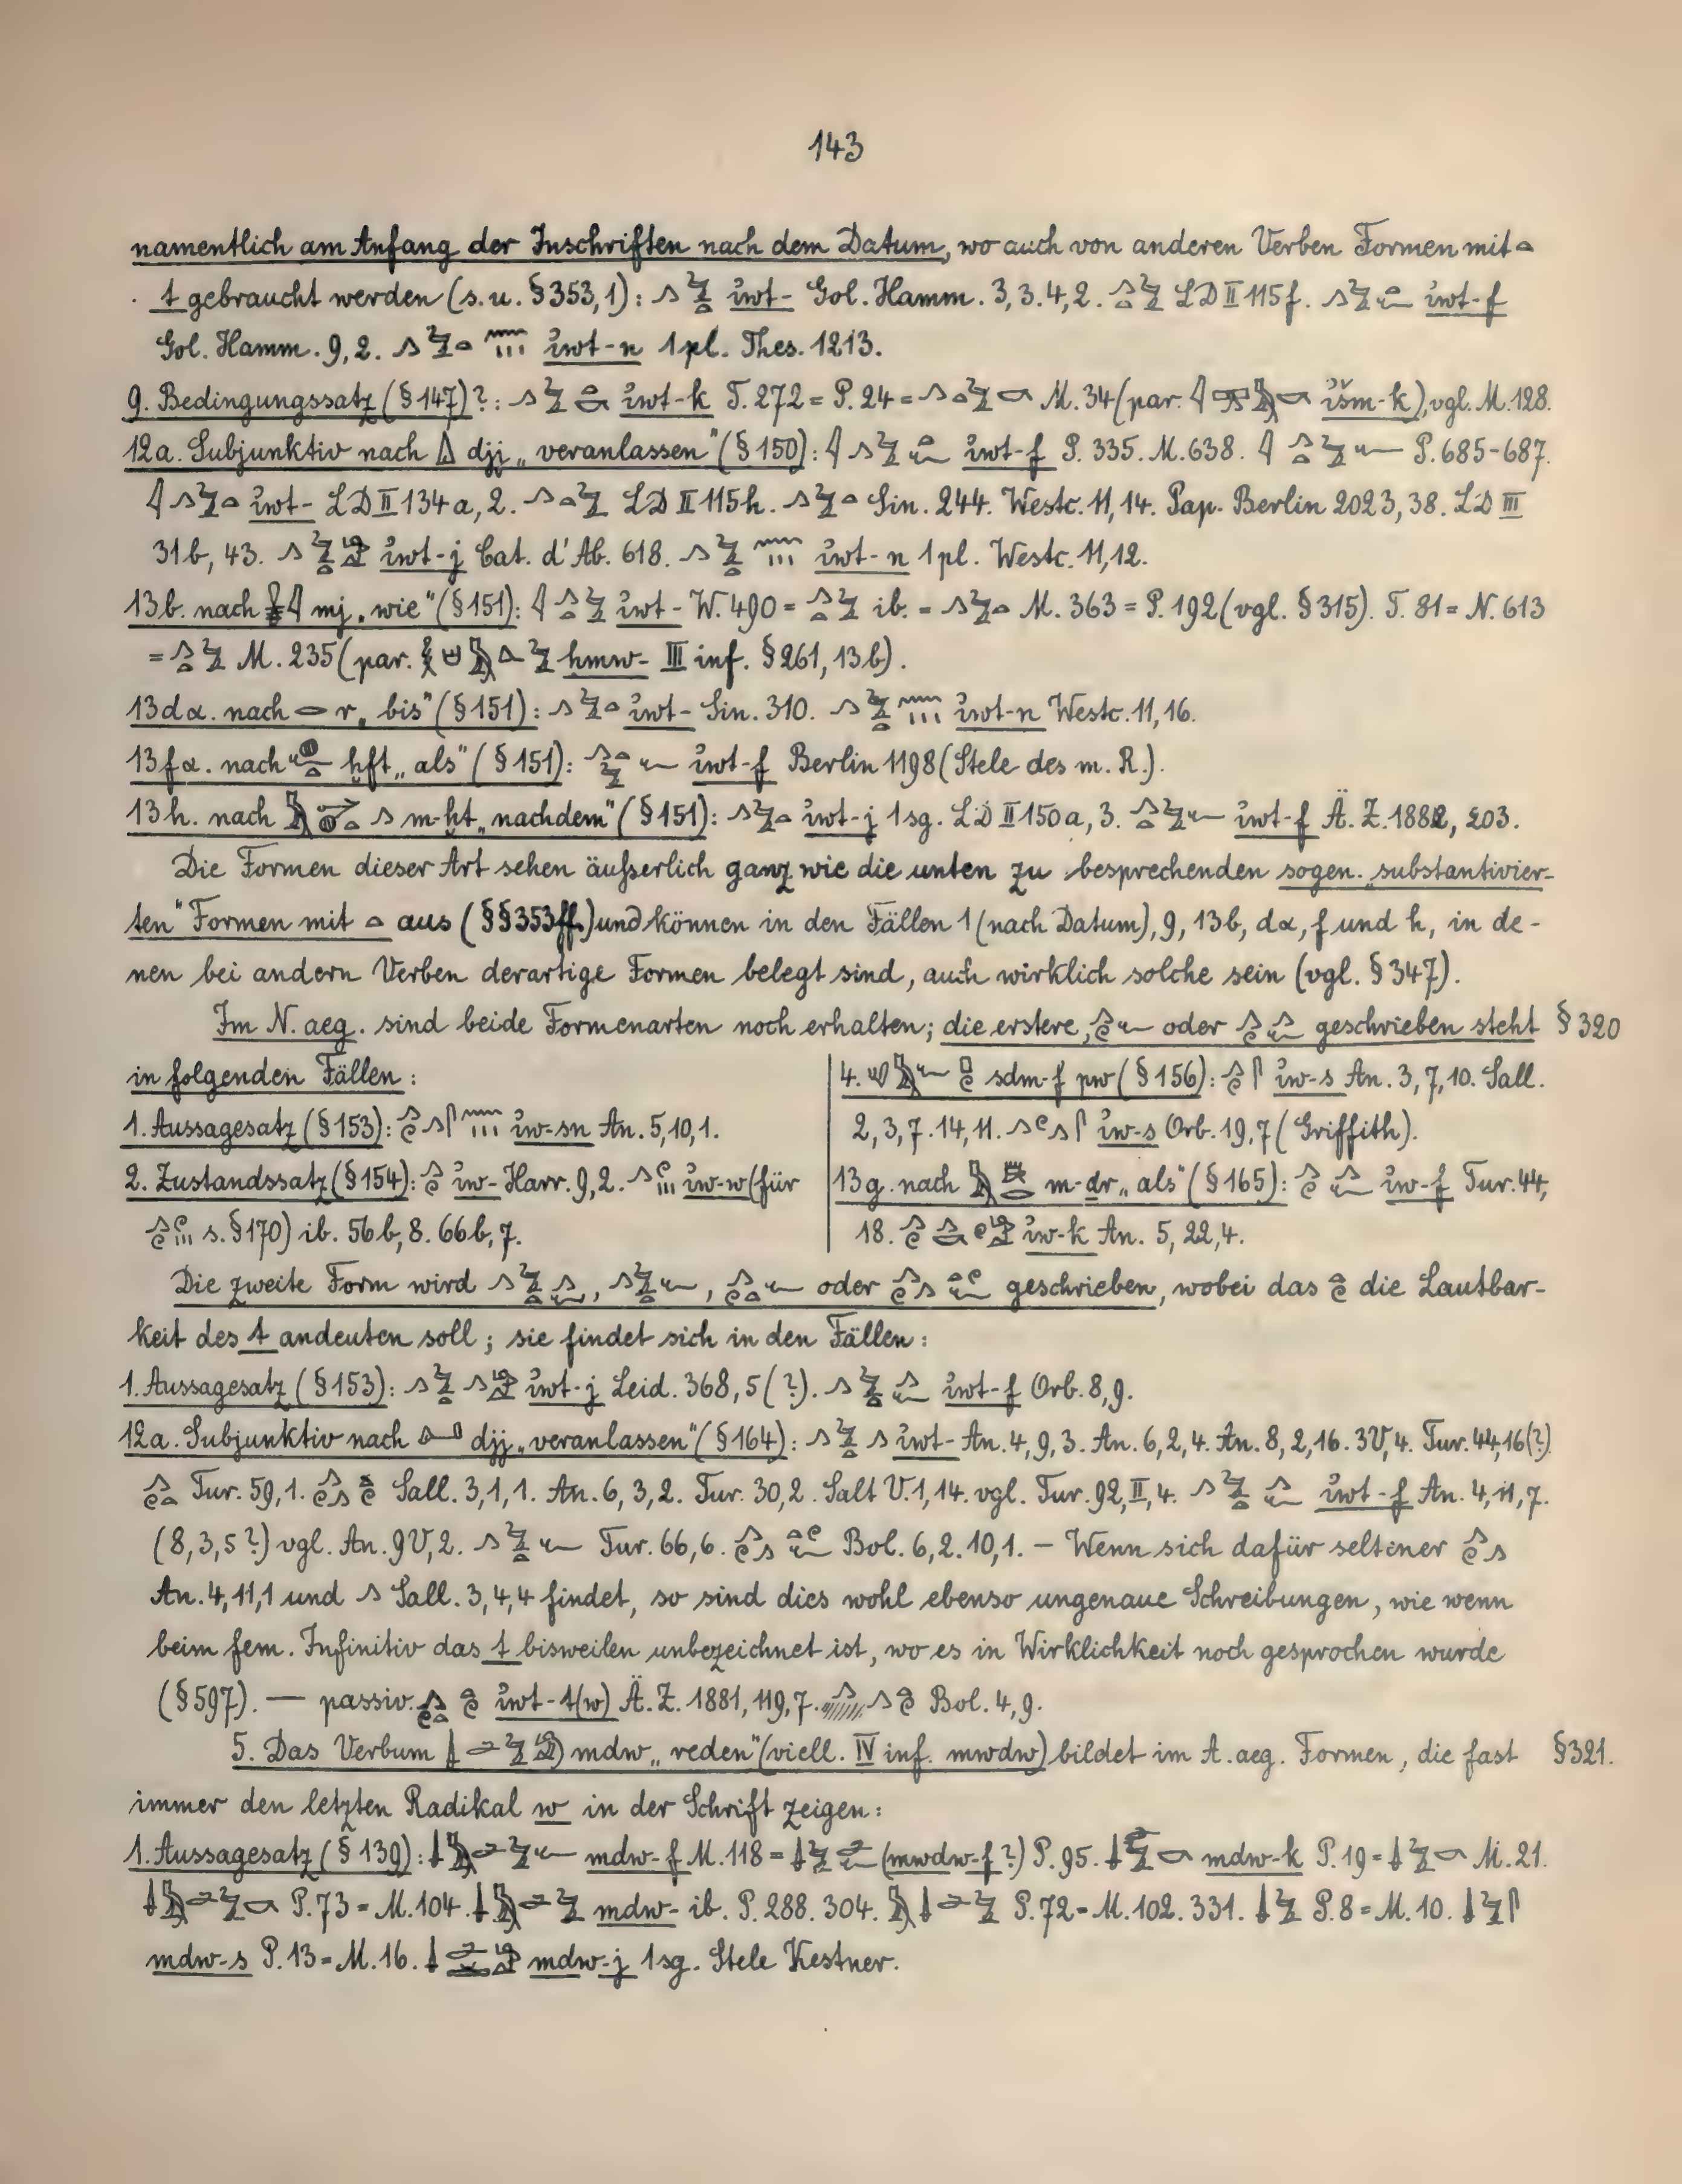 143
namentlich am Anfang der Inschriften nach dem Datum, wo auch von anderen Verben Formen mit 𓏏
t gebraucht werden (s. u. § 353,1): 𓂻𓅱𓏏 i҆wt- Gol. Hamm. 3, 3. 4, 2. 𓂻𓏏𓅱 LD II 115f. 𓂻𓅱𓏏𓆑 i҆wt-f
Gol. Hamm. 9, 2. 𓂻𓅱𓏏𓈖𓏥 i҆wt-n 1 pl. Thes. 1213.
9. Bedingungssatz (§ 147)?: 𓂻𓅱𓏏𓎡 i҆wt-k T. 272 = P. 24 = 𓂻𓏏𓅱𓎡 M. 34 (par. 𓇋𓈙𓅓𓎡 i҆šm-k), vgl. M. 128.
12a. Subjunktiv nach 𓏙 dji „veranlassen" (§ 150): 𓇋𓂻𓅱𓏏𓆑 i҆wt-f P. 335. M. 638. 𓇋𓂻𓏏𓅱𓆑 P. 685-687.
𓇋𓂻𓅱𓏏 i҆wt- LD II 134a, 2. 𓂻𓏏𓅱 LD II 115h. 𓂻𓅱𓏏 Sin. 244. Westc. 11, 14. Pap. Berlin 2023, 38. LD III
31b, 43. 𓂻𓅱𓏏𓀀 i҆wt-j Cat. d'Ab. 618. 𓂻𓅱𓏏𓈖𓏥 i҆wt-n 1 pl. Westc. 11, 12.
13b. nach 𓏇𓇋 mj „wie" (§ 151): 𓇋𓂻𓏏𓅱 i҆wt- W. 490 = 𓂻𓏏𓅱 ib. = 𓂻𓅱𓏏 M. 363 = P. 192 (vgl. § 315). T. 81 = N. 613
= 𓂻𓏏𓅱 M. 235 (par. hmw- III inf. § 261, 13b).
13dα. nach 𓂋 r „bis" (§ 151): 𓂻𓅱𓏏 i҆wt- Sin. 310. 𓂻𓅱𓏏𓈖𓏥 i҆wt-n Westc. 11, 16.
13fα. nach 𓆑𓐍𓏏 ḫft „als" (§ 151): 𓂻𓏏𓅱𓆑 i҆wt-f Berlin 1198 (Stele des m. R.).
13h. nach 𓅓𓐍𓏏𓂻 m-ḫt „nachdem" (§ 151): 𓂻𓅱𓏏 i҆wt-j 1 sg. LD II 150a, 3. 𓂻𓏏𓅱𓆑 i҆wt-f Ä. Z. 1882, 203.
Die Formen dieser Art sehen äußerlich ganz wie die unten zu besprechenden sogen. „substantivier-
ten" Formen mit 𓏏 aus (§§ 353ff.) und können in den Fällen 1 (nach Datum), 9, 13b, dα, f und h, in de-
nen bei andern Verben derartige Formen belegt sind, auch wirklich solche sein (vgl. § 347).
Im N. aeg. sind beide Formenarten noch erhalten; die erstere, 𓂻𓏲𓆑 oder 𓂻𓏲𓂻𓆑 geschrieben steht § 320
in folgenden Fällen:
1. Aussagesatz (§ 153): 𓂻𓏲𓂻𓋴𓈖𓏥 i҆w-sn An. 5, 10, 1.
2. Zustandssatz (§ 154): 𓂻𓏲 i҆w- Harr. 9, 2. 𓂻𓏲𓏥 i҆w-w (für
𓂻𓏲𓏲𓏥 s. § 170) ib. 56b, 8. 66b, 7.
4. 𓄔𓅓𓆑 𓊪𓏲 sdm-f pw (§ 156): 𓂻𓏲𓋴 i҆w-s An. 3, 7, 10. Sall.
2, 3, 7. 14, 11. 𓂻𓏲𓂻𓋴 i҆w-s Orb. 19, 7 (Griffith).
13g. nach 𓅓 m-dr „als" (§ 165): 𓂻𓏲𓂻𓆑 i҆w-f Tur. 44,
18. 𓂻𓏲𓂻𓎡𓏲𓀀 i҆w-k An. 5, 22, 4.
Die zweite Form wird 𓂻𓅱𓏏𓂻𓆑, 𓂻𓅱𓏏𓆑, 𓂻𓏲𓏏𓆑 oder 𓂻𓏲𓂻𓏏𓏲𓆑 geschrieben, wobei das 𓏏𓏲 die Lautbar-
keit des t andeuten soll; sie findet sich in den Fällen:
1. Aussagesatz (§ 153): 𓂻𓅱𓏏𓂻𓀀 i҆wt-j Leid. 368, 5 (?). 𓂻𓅱𓏏𓂻𓆑 i҆wt-f Orb. 8, 9.
12a. Subjunktiv nach 𓂞 djj „veranlassen" (§ 164): 𓂻𓅱𓏏𓂻 i҆wt- An. 4, 9, 3. An. 6, 2, 4. An. 8, 2, 16. 3V, 4. Tur. 44, 16 (?)
𓂻𓏲𓏏 Tur. 59, 1. 𓂻𓏲𓂻𓏏𓏲 Sall. 3, 1, 1. An. 6, 3, 2. Tur. 30, 2. Salt V. 1, 14. vgl. Tur. 92, II, 4. 𓂻𓅱𓏏𓂻𓆑 i҆wt-f An. 4, 11, 7.
(8, 3, 5?) vgl. An. 9V, 2. 𓂻𓅱𓏏𓆑 Tur. 66, 6. 𓂻𓏲𓂻𓏏𓏲𓆑 Bol. 6, 2. 10, 1. – Wenn sich dafür seltener 𓂻𓏲𓂻
An. 4, 11, 1 und 𓂻 Sall. 3, 4, 4 findet, so sind dies wohl ebenso ungenaue Schreibungen, wie wenn
beim fem. Infinitiv das t bisweilen unbezeichnet ist, wo es in Wirklichkeit noch gesprochen wurde
(§ 597). — passiv. 𓂻𓏲𓏏𓏏𓏲 i҆wt-t(w) Ä. Z. 1881, 119, 7. 𓂻𓂻𓏏𓏲 Bol. 4, 9.
5. Das Verbum 𓌃𓂧𓅱𓀁) mdw „reden" (viell. IV inf. mwdw) bildet im A. aeg. Formen, die fast § 321.
immer den letzten Radikal w in der Schrift zeigen:
1. Aussagesatz (§ 139): 𓌃𓅓𓂧𓅱𓆑 mdw-f M. 118 = 𓌃𓅱𓂧𓆑 (mwdw-f?) P. 95. 𓌃𓅱𓂧𓎡 mdw-k P. 19 = 𓌃𓅱𓎡 M. 21.
𓌃𓅓𓂧𓅱𓎡 P. 73 = M. 104. 𓌃𓅓𓂧𓅱 mdw- ib. P. 288. 304. 𓅓𓌃𓂧𓅱 P. 72 = M. 102. 331. 𓌃𓅱 P. 8 = M. 10. 𓌃𓅱𓋴
mdw-s P. 13 = M. 16. 𓌃𓂧𓀀 mdw-j 1 sg. Stele Kestner.